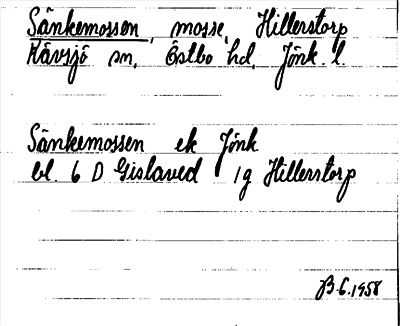 Sänkemossen, mosse, Hillerstorp
Kävsjö sn, Östbo hd, Jönk. l.
Sänkemossen ek Jönk
bl. 6 D Gislaved 1g Hillerstorp
B.G.1958